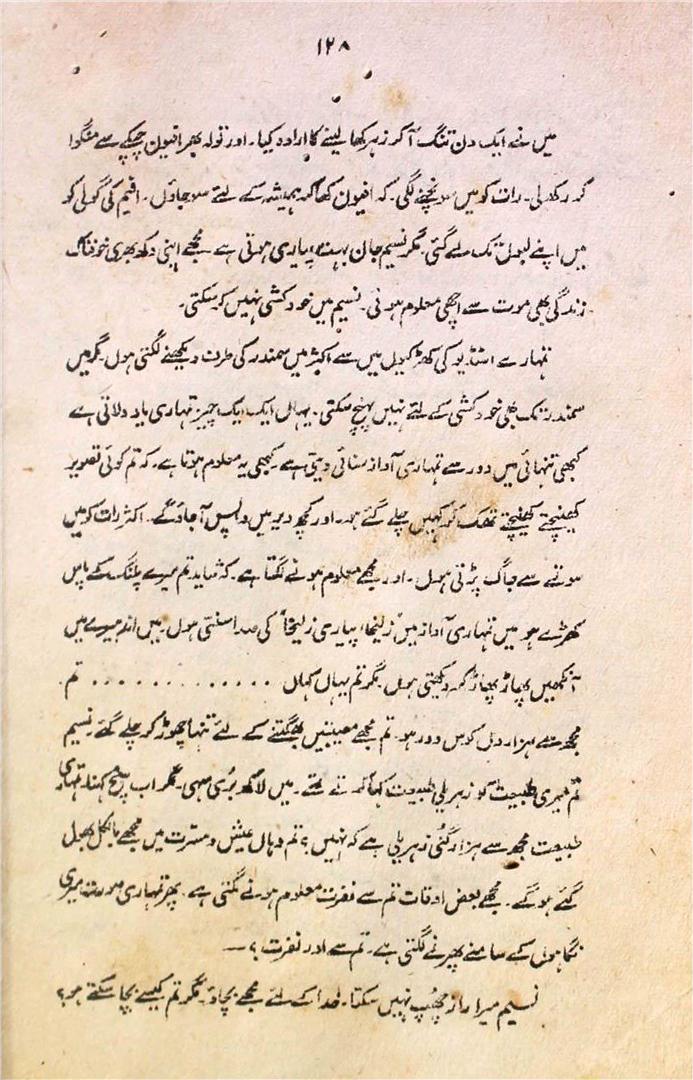 ۱۲۸
میں نے ایک دن تنگ آ کر زہر کھا لینے کا ارادہ کیا۔ اور تولہ بھر افیون چپکے سے منگوا
کر رکھ لی۔ رات کو میں سونچنے لگی۔ کہ افیون کھا کر ہمیشہ کے لئے سو جاؤں۔ افیم کی گولی کو
میں اپنے لبوں تک لے گئی۔ مگر نسیم جان بہت پیاری ہوتی ہے۔ مجھے اپنی دکھ بھری خوفناک
زندگی بھی موت سے اچھی معلوم ہوئی۔ نسیم میں خودکشی نہیں کر سکتی۔
تمہارے اسٹڈیو کی کھڑکیوں میں سے اکثر میں سمندر کی طرف دیکھنے لگتی ہوں۔ مگر میں
سمندر تک بھی خودکشی کے لئے نہیں پہنچ سکتی۔ یہاں ایک ایک چیز تمہاری یاد دلاتی ہے
کبھی تنہائی میں دور سے تمہاری آواز سنائی دیتی ہے۔ کبھی یہ معلوم ہوتا ہے۔ کہ تم کوئی تصویر
کھینچتے کھینچتے تھک کر کہیں چلے گئے ہو۔ اور کچھ دیر میں واپس آ جاؤ گے۔ اکثر رات کو میں
سوتے سے جاگ پڑتی ہوں۔ اور مجھے معلوم ہونے لگتا ہے۔ کہ شاید تم میرے پلنگ کے پاس
کھڑے ہو میں تمہاری آواز میں "زلیخا، پیاری زلیخا" کی صدا سنتی ہوں۔ میں اندھیرے میں
آنکھیں پھاڑ پھاڑ کر دیکھتی ہوں۔ مگر تم یہاں کہاں ............. تم
مجھ سے ہزار دل کوس دور ہو۔ تم مجھے مصیبتیں بھگتنے کے لئے تنہا چھوڑ کر چلے گئے۔ نسیم
تم میری طبیعت کو زہریلی طبیعت کہا کرتے تھے۔ میں لاکھ بری سہی۔ مگر اب سچ کہنا تمہاری
طبیعت مجھ سے ہزار گنی زہریلی ہے کہ نہیں؟ تم وہاں عیش و مسرت میں مجھے بالکل بھول
گئے ہو گے۔ مجھے بعض اوقات تم سے نفرت معلوم ہونے لگتی ہے۔ پھر تمہاری صورت میری
نگاہوں کے سامنے پھرنے لگتی ہے۔ تم سے اور نفرت؟ —
نسیم میرا راز چھپ نہیں سکتا۔ خدا کے لئے مجھے بچاؤ۔ مگر تم کیسے بچا سکتے ہو؟